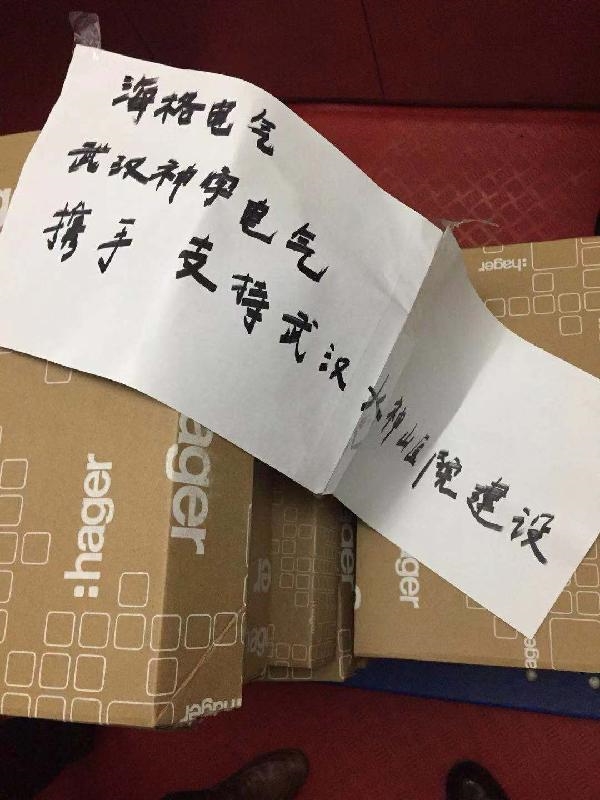 海格电气
武汉神宇电气
携手 支持武汉火神山医院建设
:hager
:hager
ager
hager
hager
ager